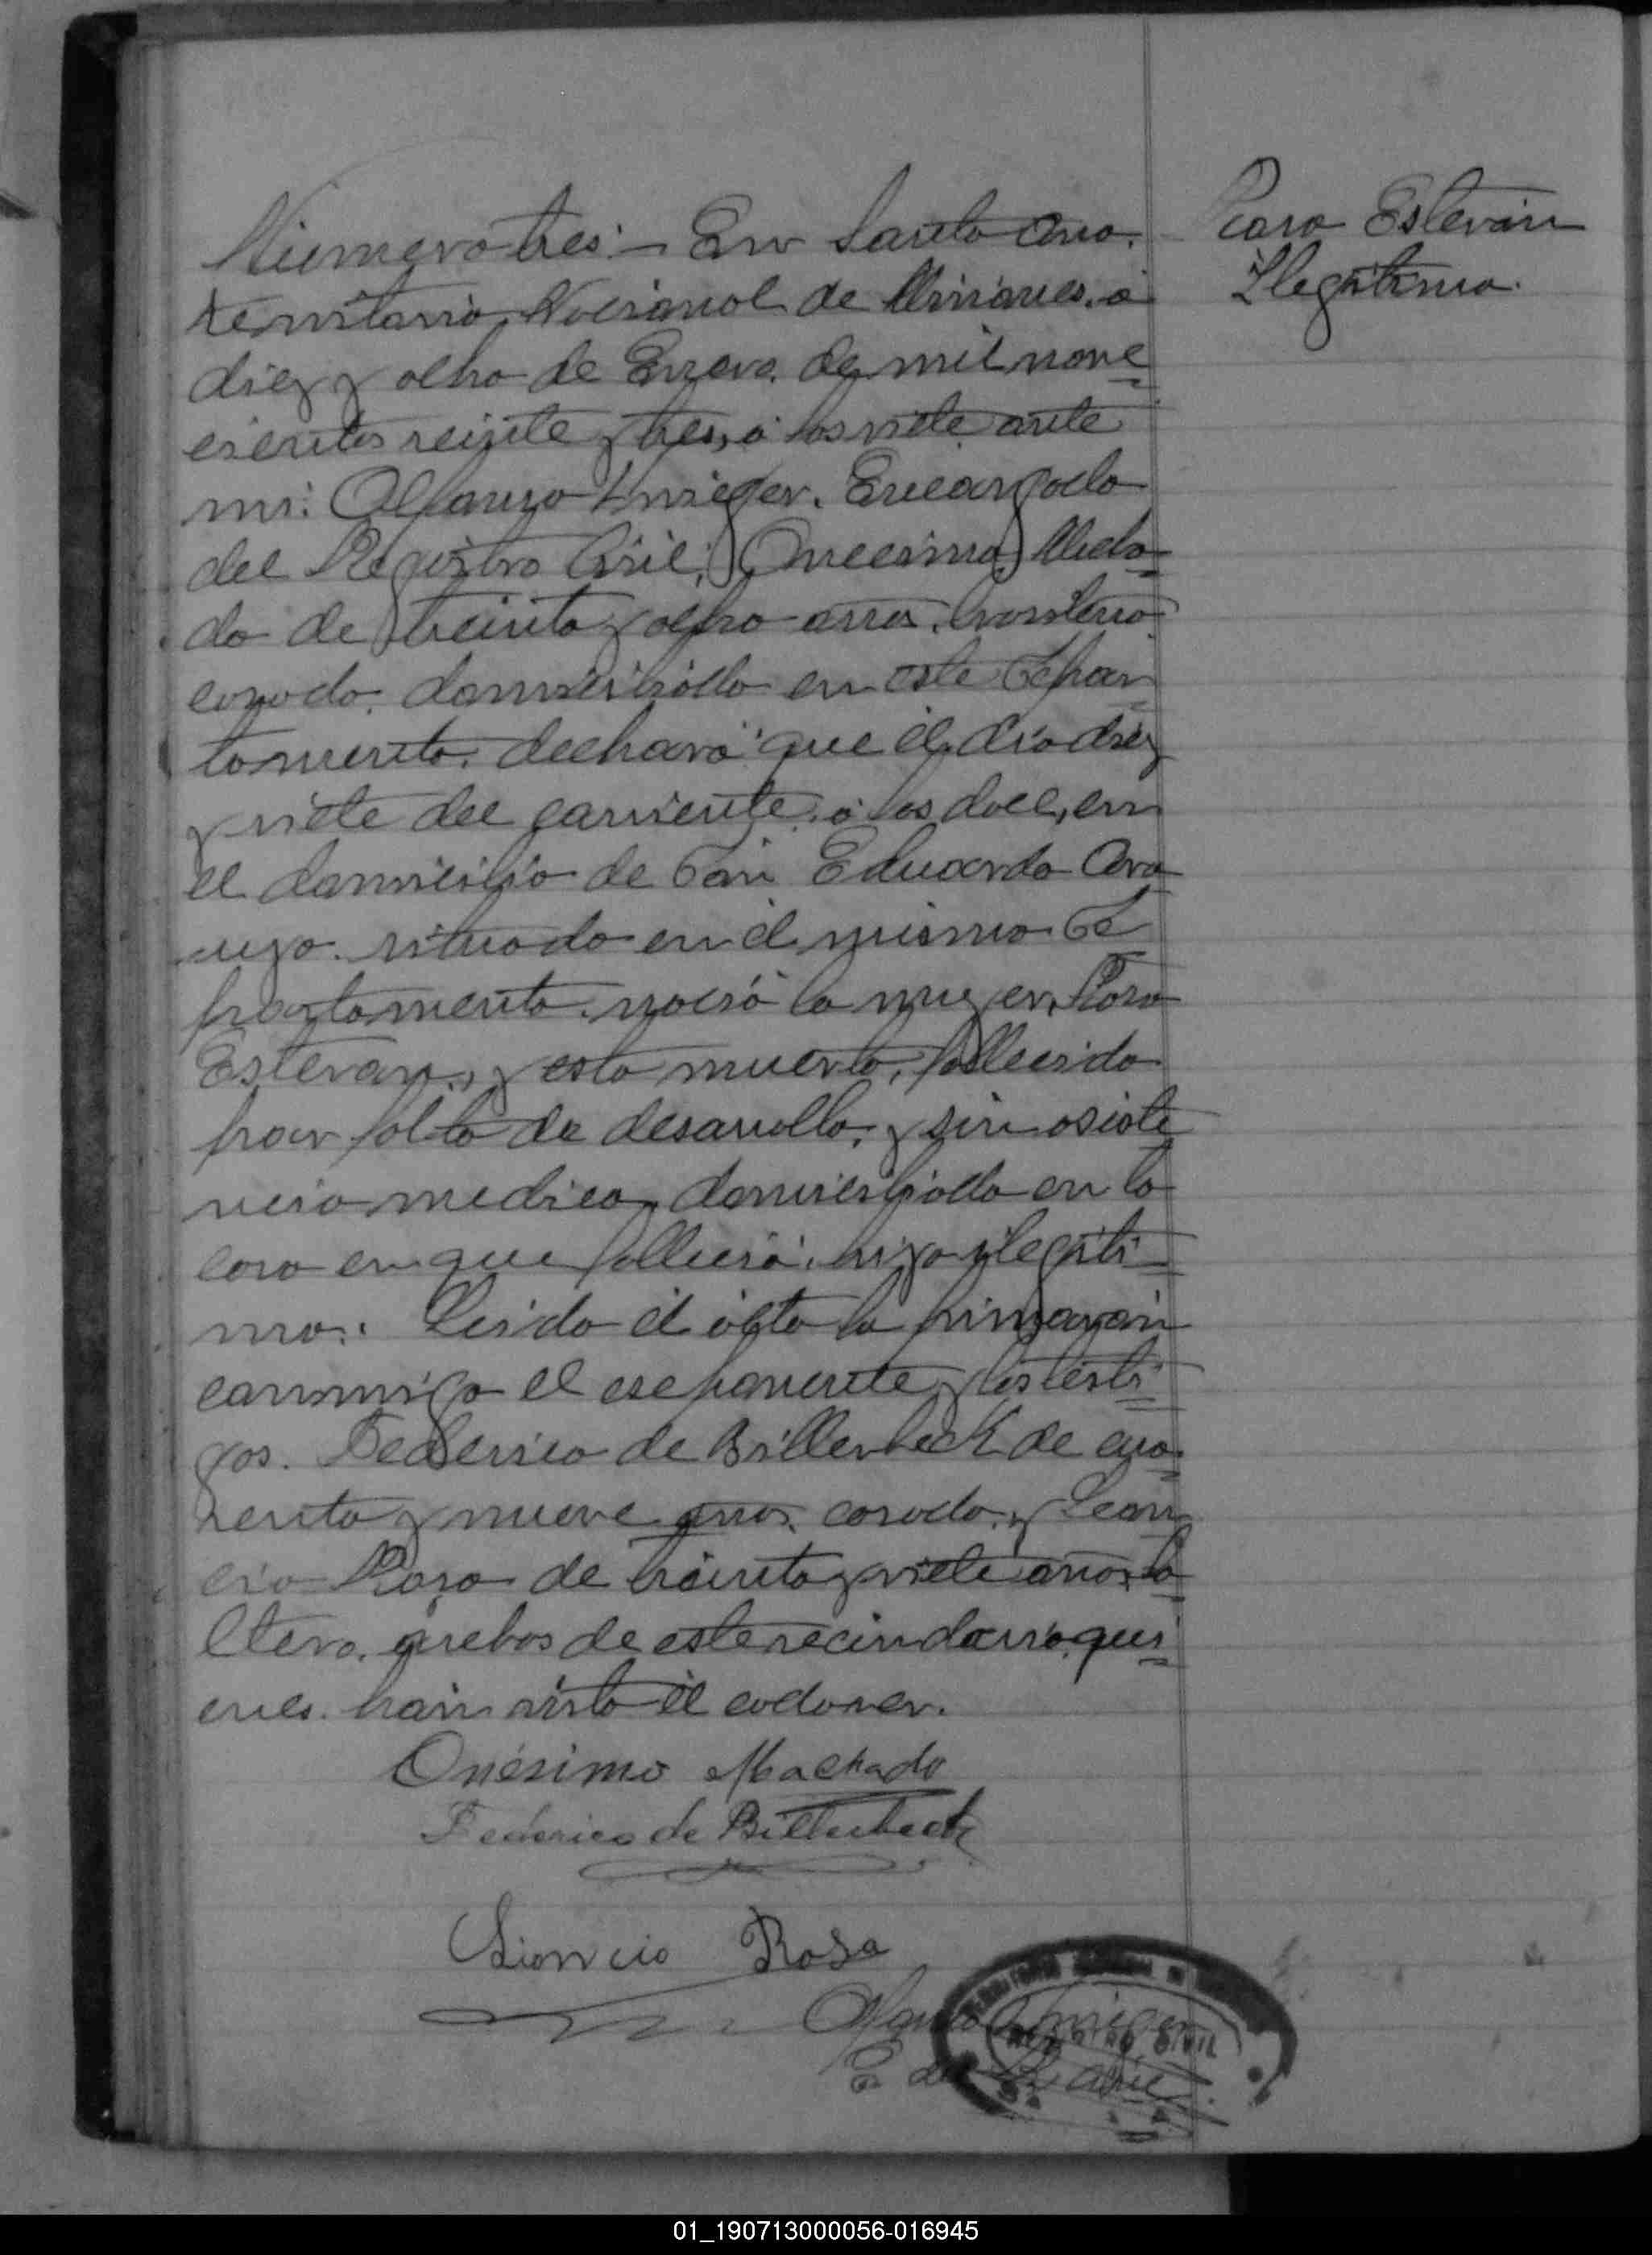 Numero tres.- En Santa Ana.
territorio Nacional de Misiones. a
diez y ocho de Enero. de mil nove
cientos veinte y tres, a las siete ante
mi: Alfonso Encargado
del Registro Civil, Onecimo Macha
do de treinta y ocho años. brasilero
casado. domiciliado en este Depar
tamento. declaró que el dia diez
y siete del corriente. a las doce, en
el domicilio de Don Eduardo Ara
ujo. situado en el mismo De
partamento. nació la mujer, Rosa
Estevan., y esta muerta, fallecida
por falta de desarrollo, y sin asiste
ncia medica, domiciliada en la
casa en que falleció. hija ilegiti
ma. Leida el acta la firmaron
conmigo el esponente y los testi
gos. Federico de Billerbeck de cua
renta y nueve años. casado. y Leon
cio Rosa de treinta y siete años, so
ltero. ambos de este vecindario. qui
enes. han visto el cadaver.
Onésimo Machado
Federico de Billerbeck
Lioncio Rosa
Alfonso
E del R. Civil
REGISTRO CIVIL
Rosa Estevan
Ilegitima.
01_190713000056-016945